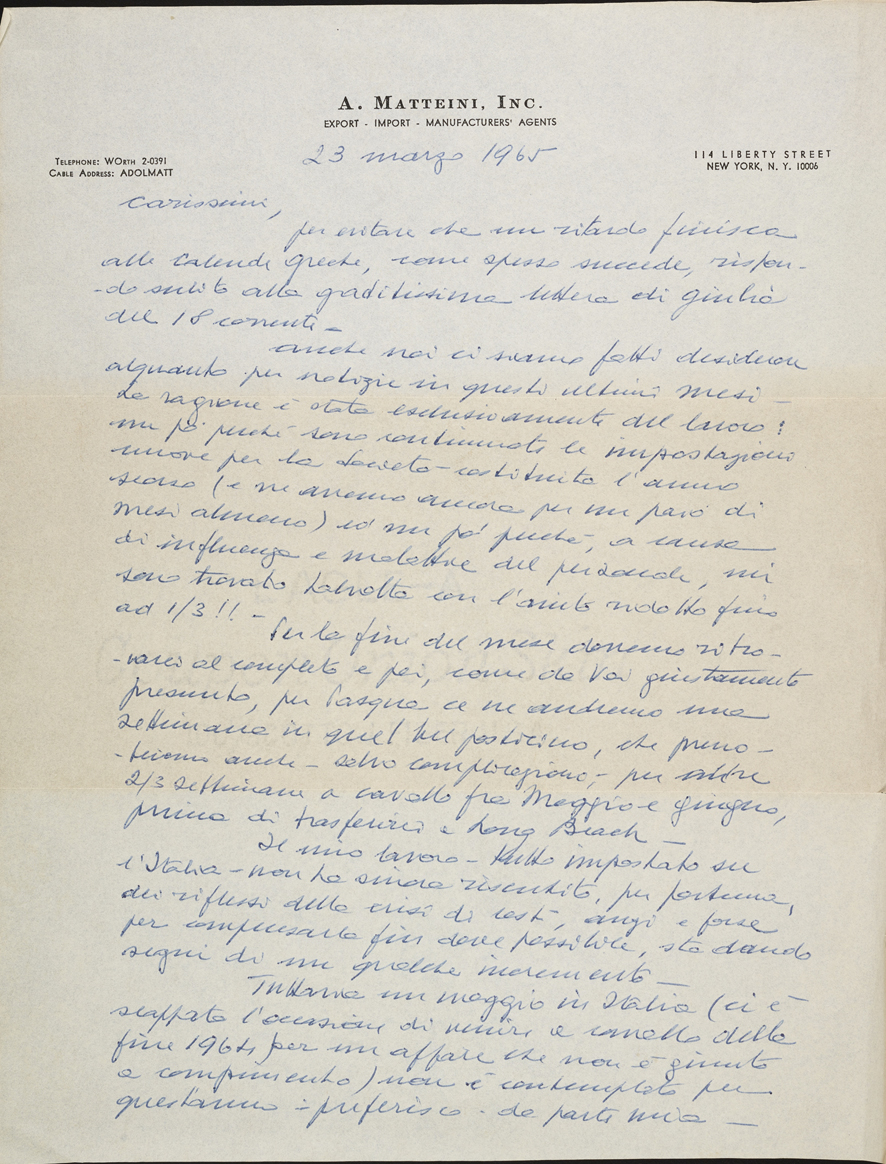 A. MATTEINI, INC.
EXPORT - IMPORT - MANUFACTURERS' AGENTS
TELEPHONE: WORTH 2-0391
CABLE ADDRESS: ADOLMATT
114 LIBERTY STREET
NEW YORK, N. Y. 10006
23 marzo 1965
Carissimi,
per evitare che un ritardo finisca
alle Calende Greche, come spesso succede, rispon-
-do subito alla graditissima lettera di Giulia
del 18 corrente -
Anche noi ci siamo fatti desiderare
alquanto per notizie in questi ultimi mesi -
La ragione è stata esclusivamente del lavoro:
un po' perché sono continuate le impostazioni
nuove per la Società costituita l'anno
scorso (e ne avremo ancora per un paio di
mesi almeno) ed un po' perché, a causa
di influenza e malattie del personale, mi
sono trovato talvolta con l'aiuto ridotto fino
ad 1/3!! -
Per la fine del mese dovremo ritro-
-varci al completo e poi, come da Voi giustamente
presunto, per Pasqua ce ne andremo una
settimana in quel bel posticino, che preno-
-teremo anche - salvo complicazioni - per altre
2/3 settimane a cavallo fra Maggio e Giugno,
prima di trasferirci a Long Beach -
Il mio lavoro - tutto impostato su
l'Italia - non ha sinora risentito, per fortuna,
dei riflessi della crisi di costì, anzi e forse
per compensarla fin dove possibile, sta dando
segni di un qualche incremento -
Tuttavia un viaggio in Italia (ci è
scappata l'occasione di venire a cavallo della
fine 1964 per un affare che non è giunto
a compimento) non è contemplato per
quest'anno: preferisco - da parte mia -